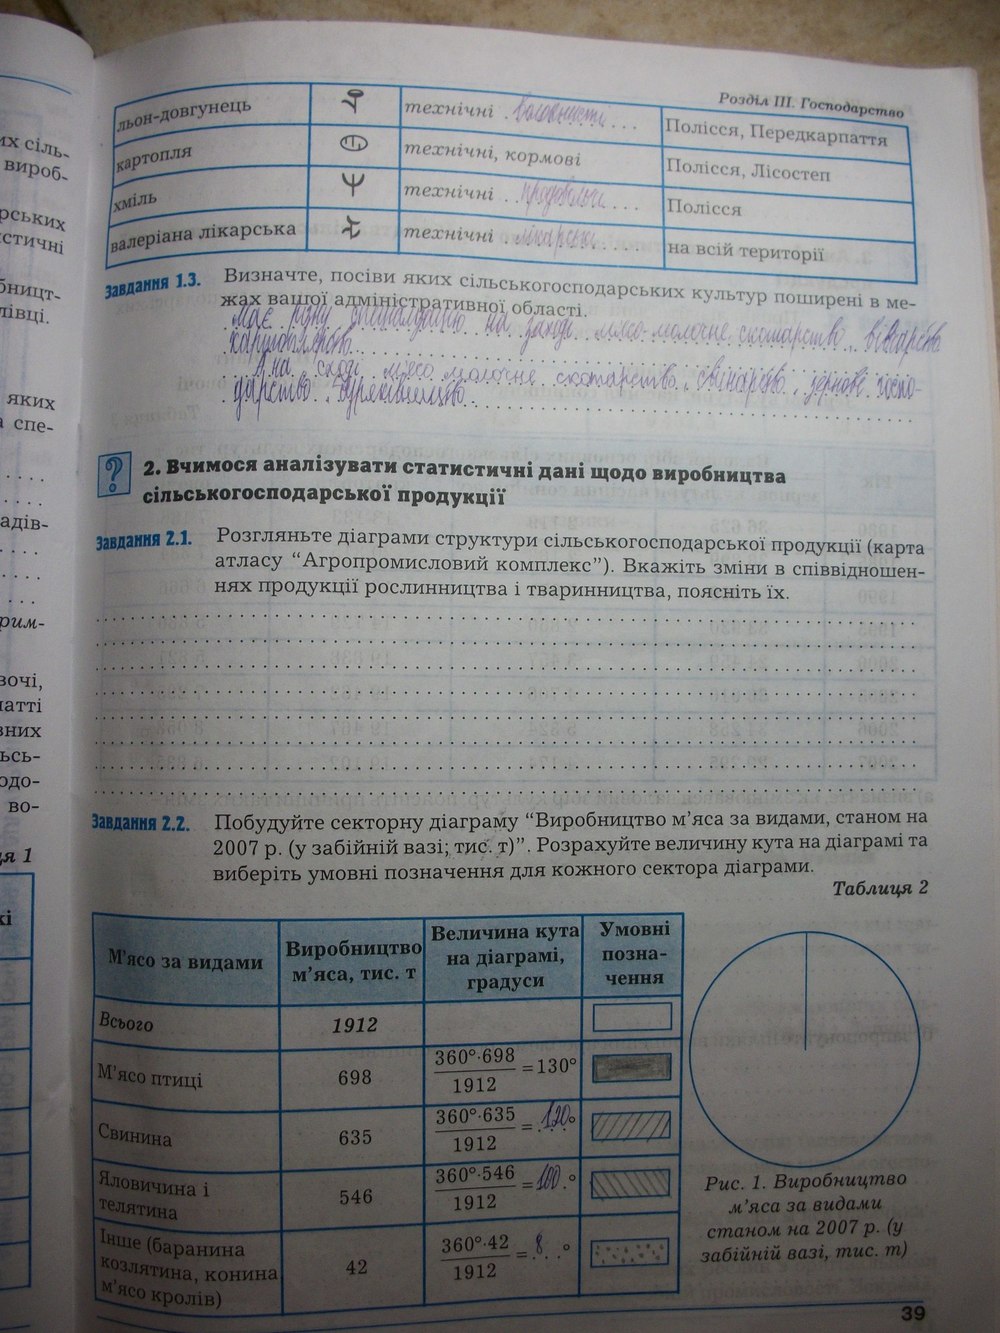 Розділ III. Господарство
льон-довгунець технічні Полісся, Передкарпаття
картопля технічні, кормові Полісся, Лісостеп
хміль технічні Полісся
валеріана лікарська технічні лікарські на всій території
Завдання 1.3. Визначте, посіви яких сільськогосподарських культур поширені в ме-
жах вашої адміністративної області.
Має різну спеціалізацію на заході мясо-молочне скотарство вівчарство
картоплярство
А на сході мясо молочне скотарство, свинарство, зернове госпо-
дарство, буряківництво
2. Вчимося аналізувати статистичні дані щодо виробництва
сільськогосподарської продукції
Завдання 2.1. Розгляньте діаграми структури сільськогосподарської продукції (карта
атласу “Агропромисловий комплекс”). Вкажіть зміни в співвідношен-
нях продукції рослинництва і тваринництва, поясніть їх.
Завдання 2.2. Побудуйте секторну діаграму “Виробництво м’яса за видами, станом на
2007 р. (у забійній вазі; тис. т)”. Розрахуйте величину кута на діаграмі та
виберіть умовні позначення для кожного сектора діаграми.
Таблиця 2
М’ясо за видами Виробництво м’яса, тис. т Величина кута на діаграмі, градуси Умовні позна-чення
Всього 1912
М’ясо птиці 698 360°·698 / 1912 =130°
Свинина 635 360°·635 / 1912 = 120°
Яловичина і телятина 546 360°·546 / 1912 = 100°
Інше (баранина козлятина, конина м’ясо кролів) 42 360°·42 / 1912 = 8°
Рис. 1. Виробництво
м’яса за видами
станом на 2007 р. (у
забійній вазі, тис. т)
39